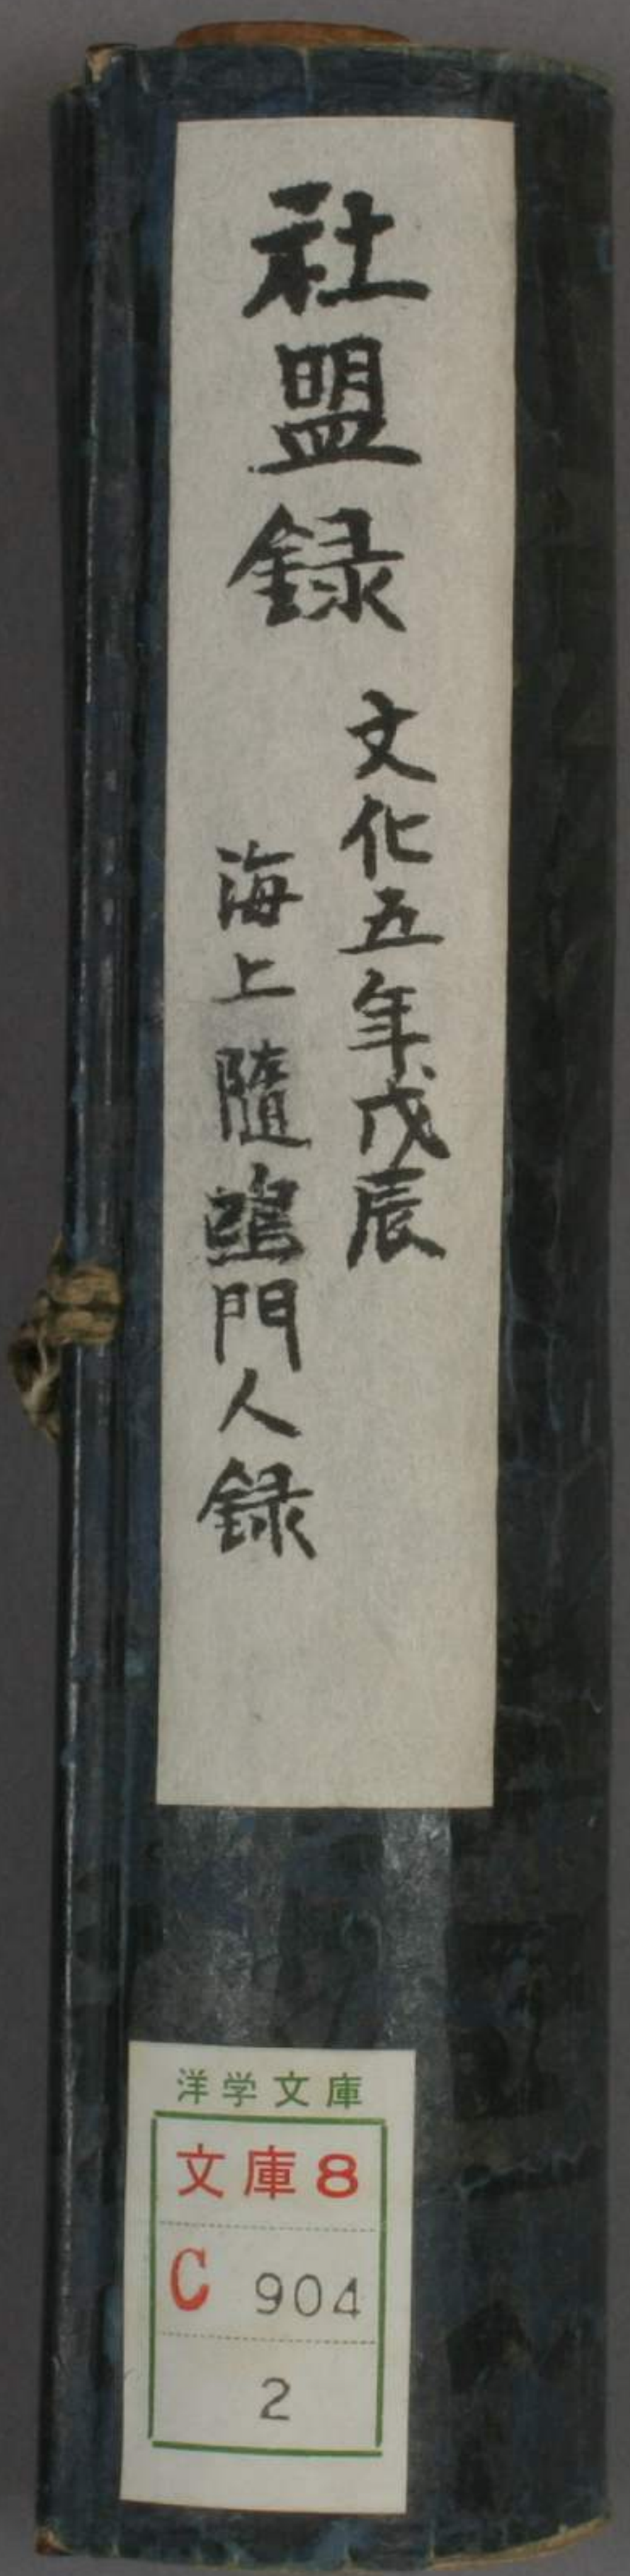 社盟録
文化五年戊辰
海上隨鷗門人録
洋学文庫
文庫8
C 904
2